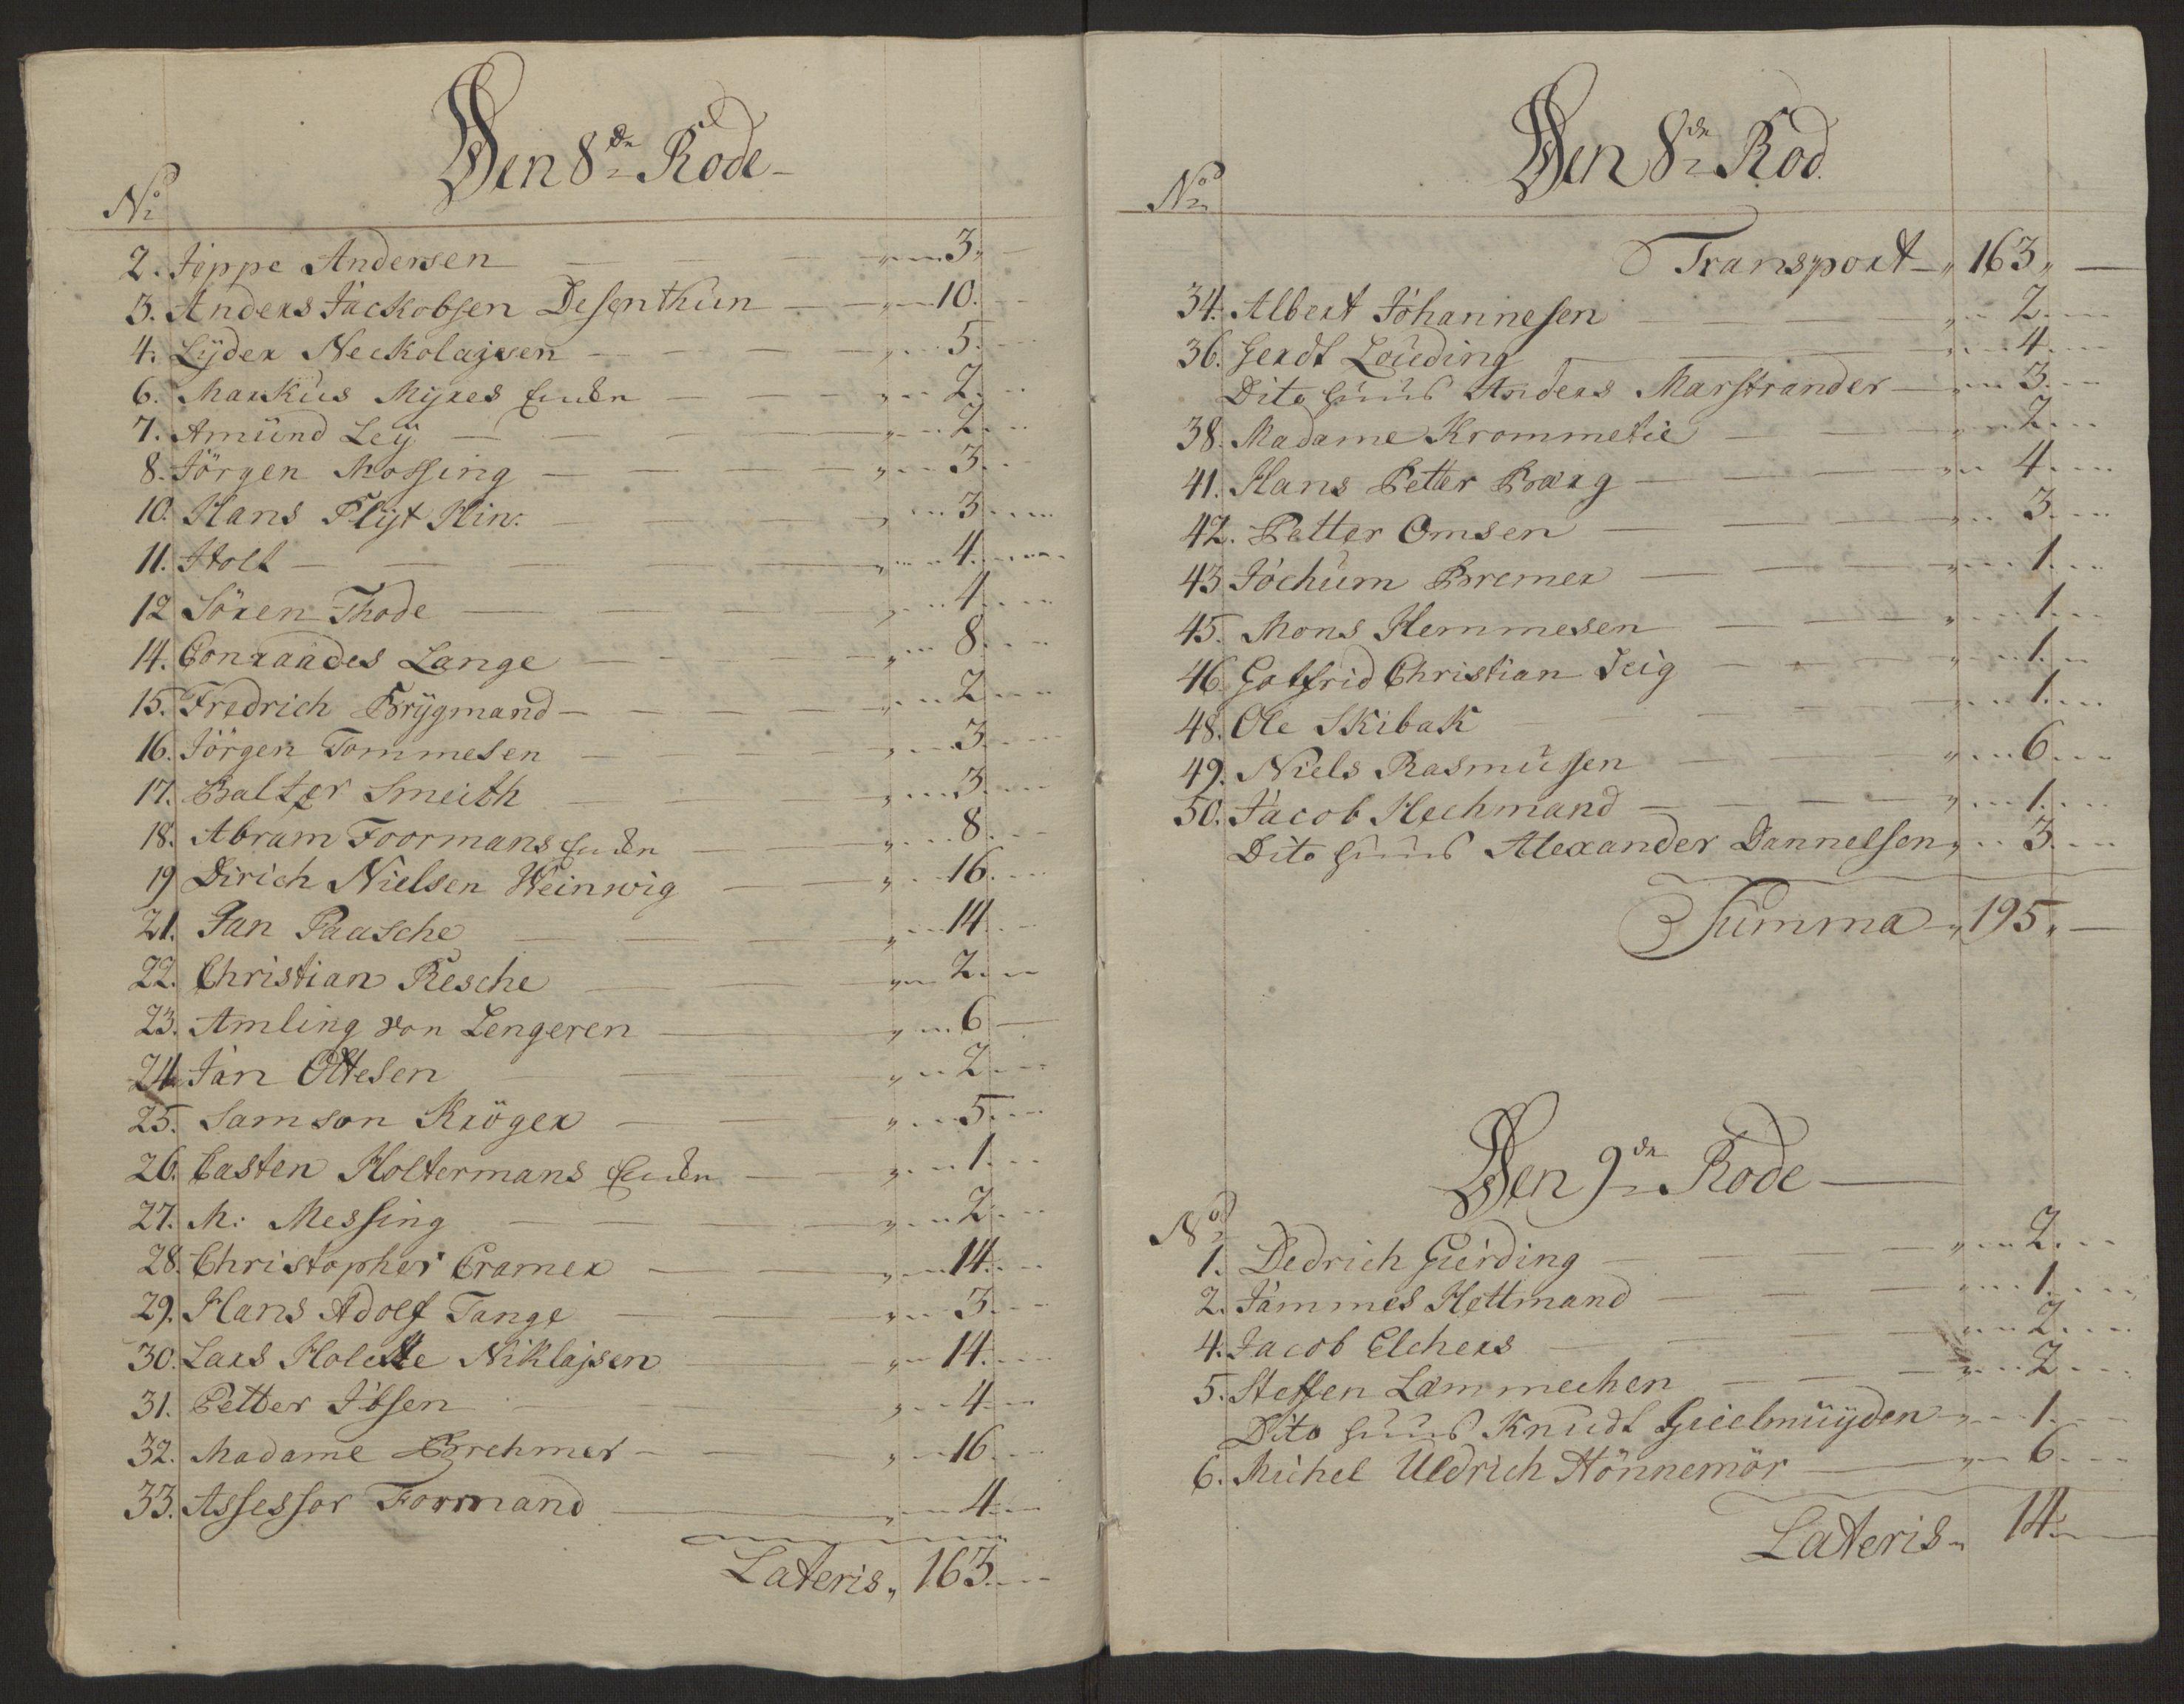 Den 8de Rode
No
2. Jeppe Andersen 3
3. Anders Jackobsen Desenthun 10
4. Lyder Neckolajsen 5
6. Markus Myres Encke 2
7. Amund Ley 2
8. Jörgen Mossing 3
10. Hans Flyt Hin: 3
11. Holt 4
12 Sören Thode 4
14. Conraades Lange 8
15. Fredrich Brygmand 2
16. Jörgen Tommesen 3
17. Baltzer Smeith 3
18. Abram Foormans Encke 8
19 Dirich Nielsen Weinwig 16
21. Jan Paasche 14
22. Christian Resche 2
23. Amling von Lengeren 6
24. Jan Ottesen 2
25. Samson Kröger 5
26. Casten Holtermans Encke 1
27. M: Messing 2
28. Christopher Cramer 14
29. Hans Adolf Tange 3
30. Lars Holck Niklajsen 14
31. Petter Ibsen 4
32. Madame Brehmer 16
33. Assessor Formand 4
Lateris 163
Den 8de Rod
No
Transport 163
34. Albert Johannesen 2
36. Gerdt Louding 4
Dito huus Anders Marstrander 3
38. Madame Krommetie 2
41. Hans Petter Barg 4
42. Petter Omsen 3
43 Jochum Bremer 1
45. Mons Hemmesen 1
46. Gotfrid Christian Teig 1
48. Ole Skibak 1
49. Niels Rasmussen 6
50. Jacob Hechmand 1
Dito huus Alexander Dannelsen 3
Summa 195
Den 9de Rode
No
1. Dedrich Gierding 2
2. Jammes Hettmand 1
4. Jacob Elchers 2
5. Steffen Lammechen 2
Dito huus Knudt Gielmuyden 1
6. Michel Uldrich Hönnemör 6
Lateris 14